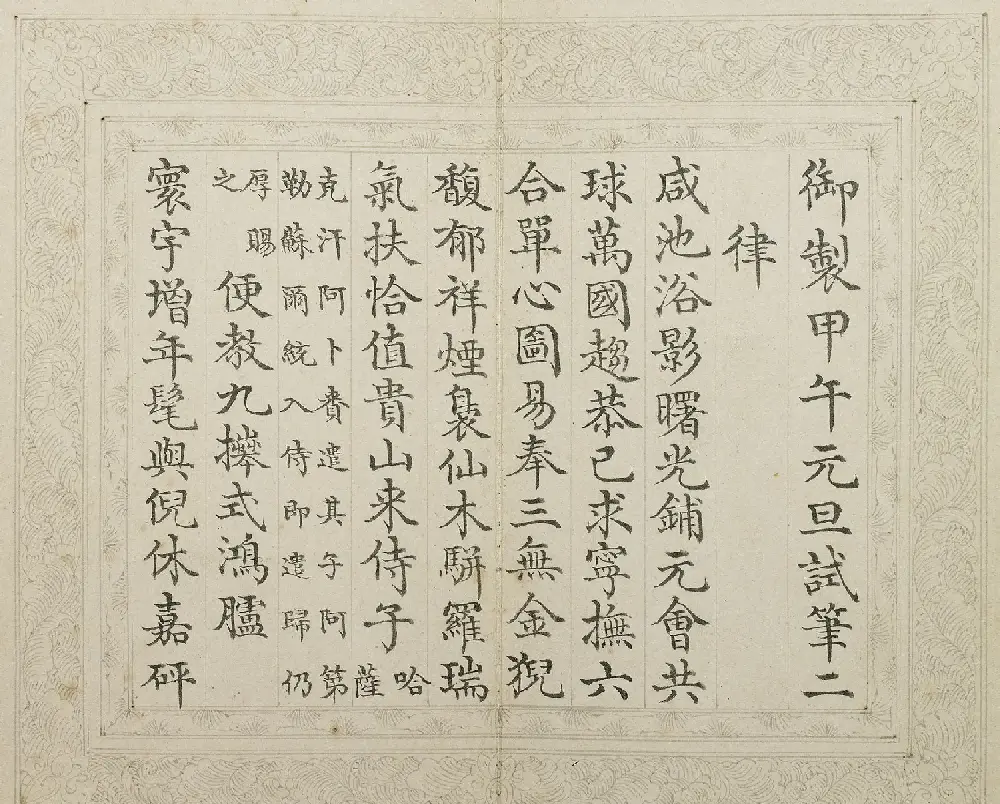 御製甲午元旦試筆二
律
咸池浴影曙光鋪元會共
球萬國趨恭己求寧撫六
合單心圖易奉三無金猊
馥郁祥煙裊仙木駢羅瑞
氣扶恰值貴山来侍子哈薩
克汗阿卜賚遣其子阿第
勒蘇爾統入侍即遣歸仍
厚賜
之
便教九𢷎式鴻臚
寰宇增年髦與倪休嘉砰